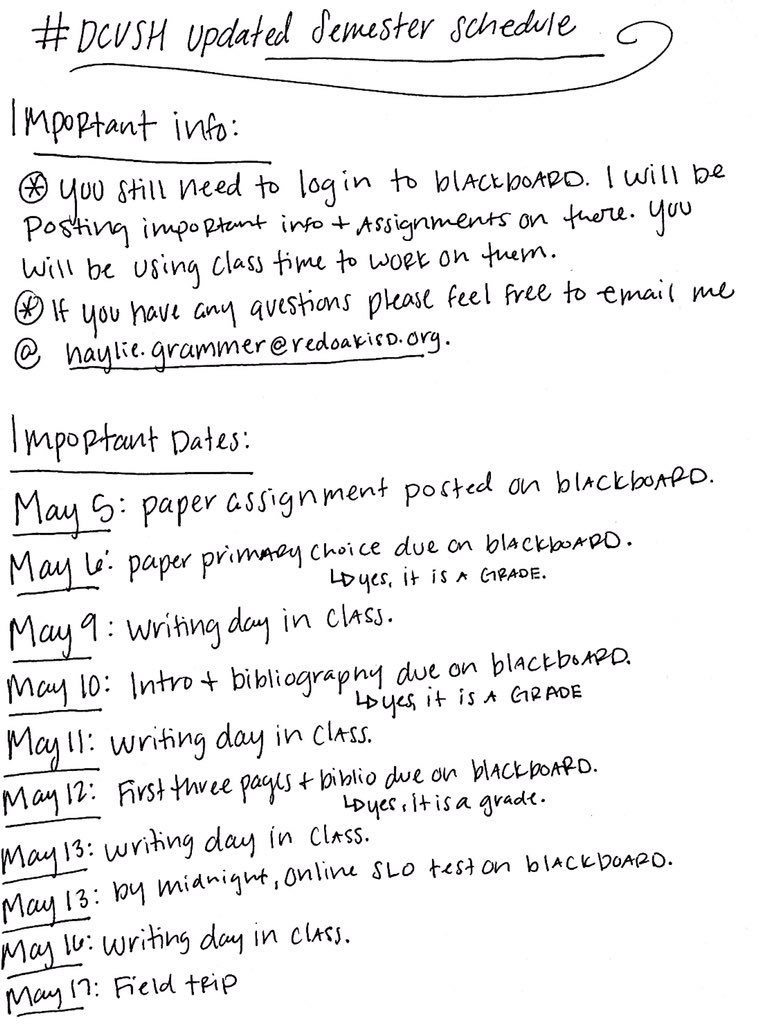 #DCUSH updated Semester schedule
Important info:
* you still need to login to blackboard. I will be
Posting important info + Assignments on there. you
will be using class time to work on them.
* If you have any questions please feel free to email me
@ haylie.grammer@redoakisd.org.
Important Dates:
May 5: paper assignment posted on blackboard.
May 6: paper primary choice due on blackboard.
↳ yes, it is a GRADE.
May 9: writing day in class.
May 10: Intro + bibliography due on blackboard.
↳ yes, it is a GRADE
May 11: writing day in class.
May 12: First three pages + biblio due on blackboard.
↳ yes, it is a grade.
May 13: writing day in class.
May 13: by midnight, online SLO test on blackboard.
May 16: writing day in class.
May 17: Field trip